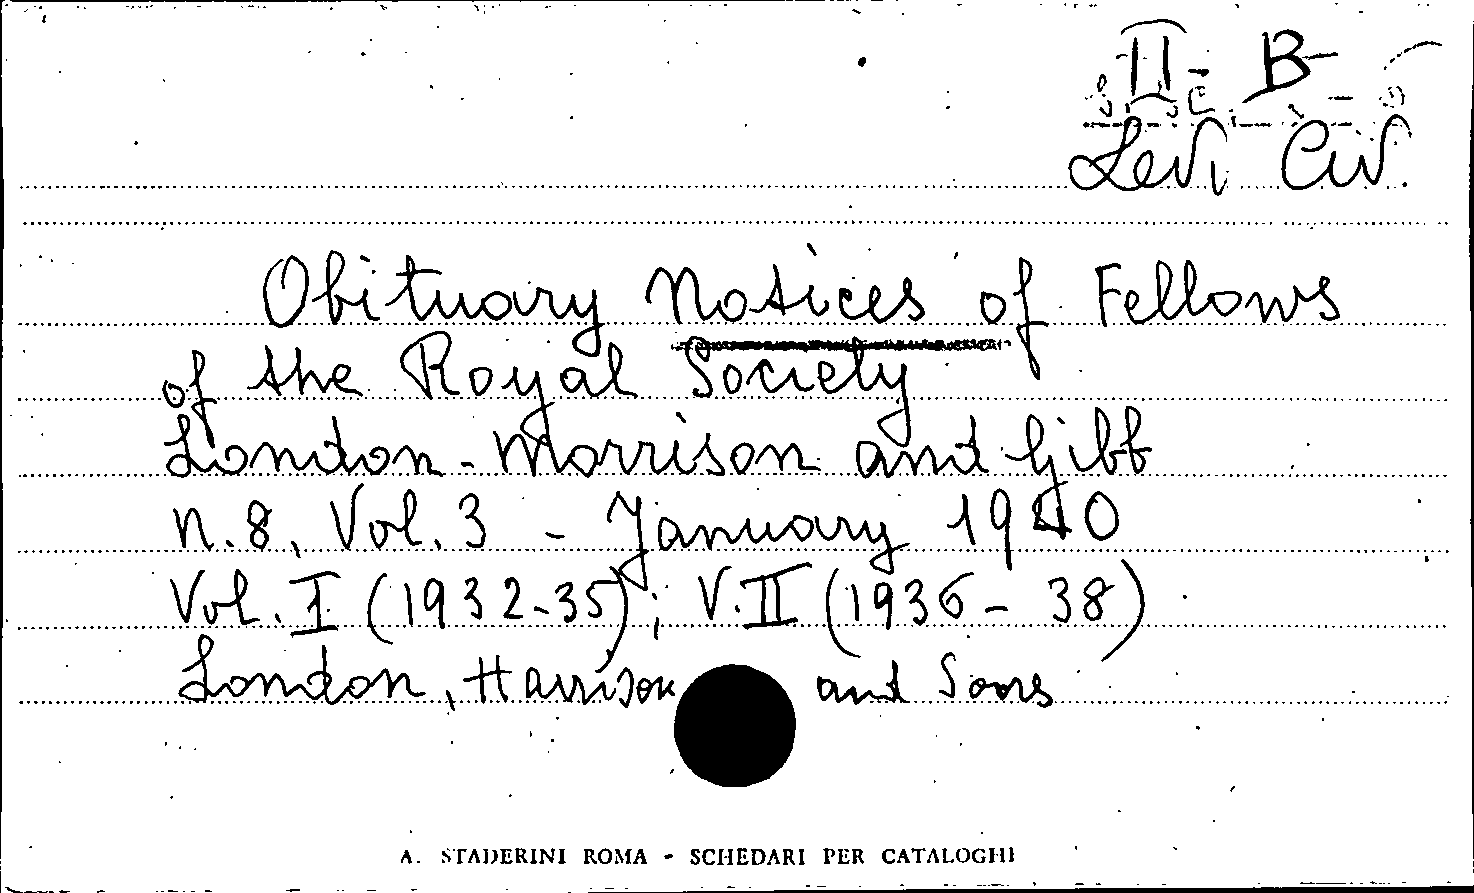 II - B -
Levi Civ.
Obituary Notices of Fellows
of the Royal Society
London - Morrison and Gibb
N. 8, Vol. 3 - January 1940
Vol. I (1932-35); V. II (1936 - 38)
London, Harrison and Sons
A. STADERINI ROMA - SCHEDARI PER CATALOGHI